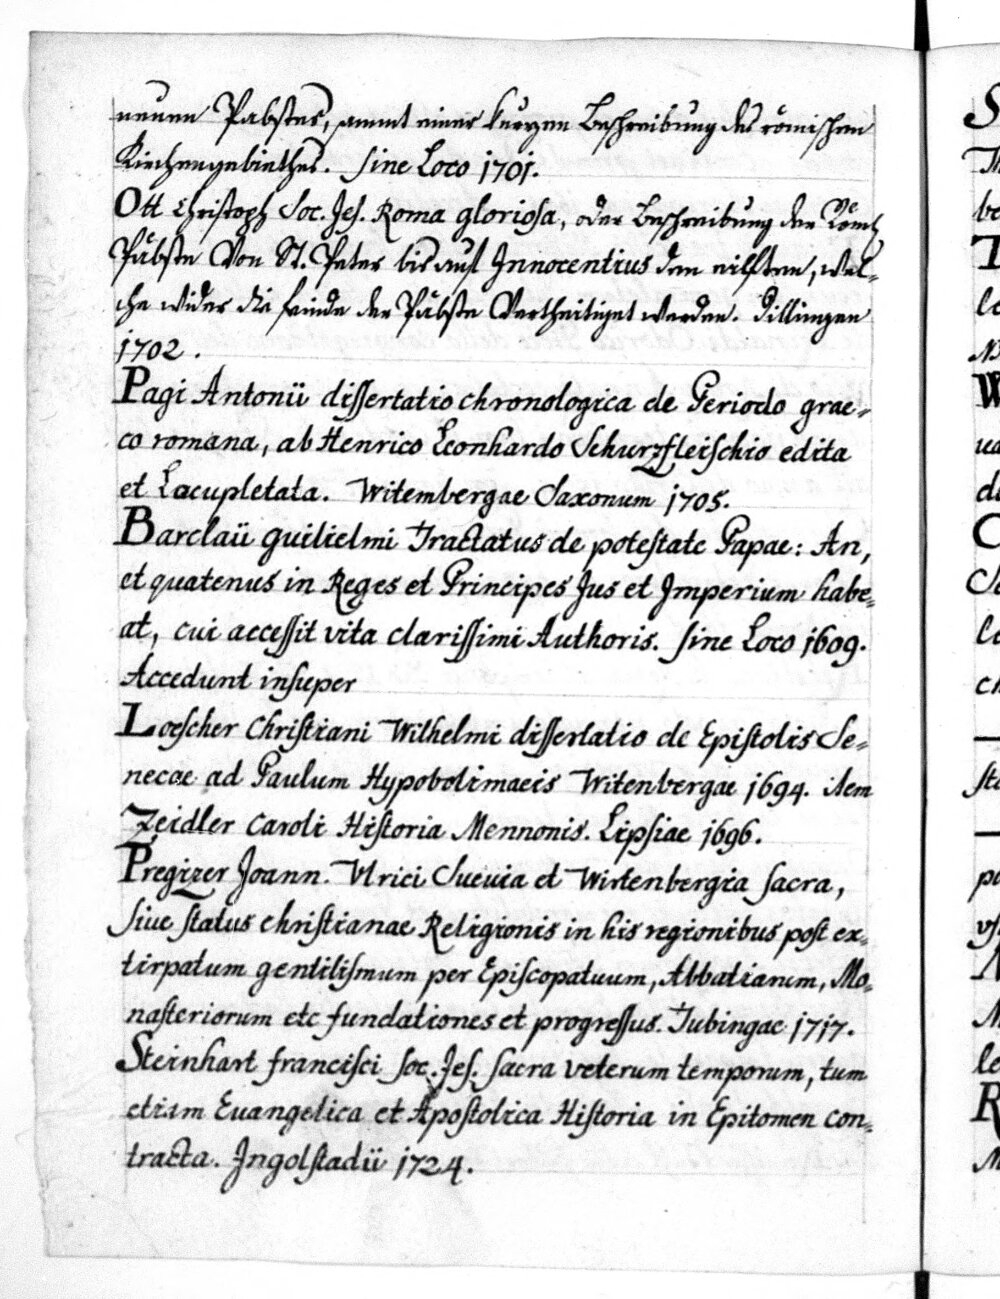 neuen Pabstes, sammt einer kurzen Beschreibung des römischen
Kirchengebiethes. Sine Loco 1701.
Ott Christoph Soc. Jes. Roma gloriosa, oder Beschreibung der Röm:
Päbste Von St. Peter bis auf Innocentius den eilften, wel-
che wider die feinde der Päbste Vertheitiget werden. Dillingen
1702.
Pagi Antonii dissertatio chronologica de Periodo grae-
co romana, ab Henrico Leonhardo Schurzfleischio edita
et Locupletata. Witembergae Saxonum 1705.
Barclaii guilielmi Tractatus de potestate Papae: An,
et quatenus in Reges et Principes Jus et Imperium habe-
at, cui accessit vita clarissimi Authoris. Sine Loco 1609.
Accedunt insuper
Loescher Christiani Wilhelmi dissertatio de Epistolis Se-
necae ad Paulum Hypobolimaeis Witenbergae 1694. item
Zeidler Caroli Historia Mennonis. Lipsiae 1696.
Pregizer Joann. Vlrici Sueuia et Wirtenbergia sacra,
siue status christianae Religionis in his regionibus post ex-
tirpatum gentilismum per Episcopatuum, Abbatiarum, Mo-
nasteriorum etc fundationes et progressus. Tubingae 1717.
Steinhart francisci Soc. Jes. sacra veterum temporum, tum
etiam Euangelica et Apostolica Historia in Epitomen con-
tracta. Ingolstadii 1724.